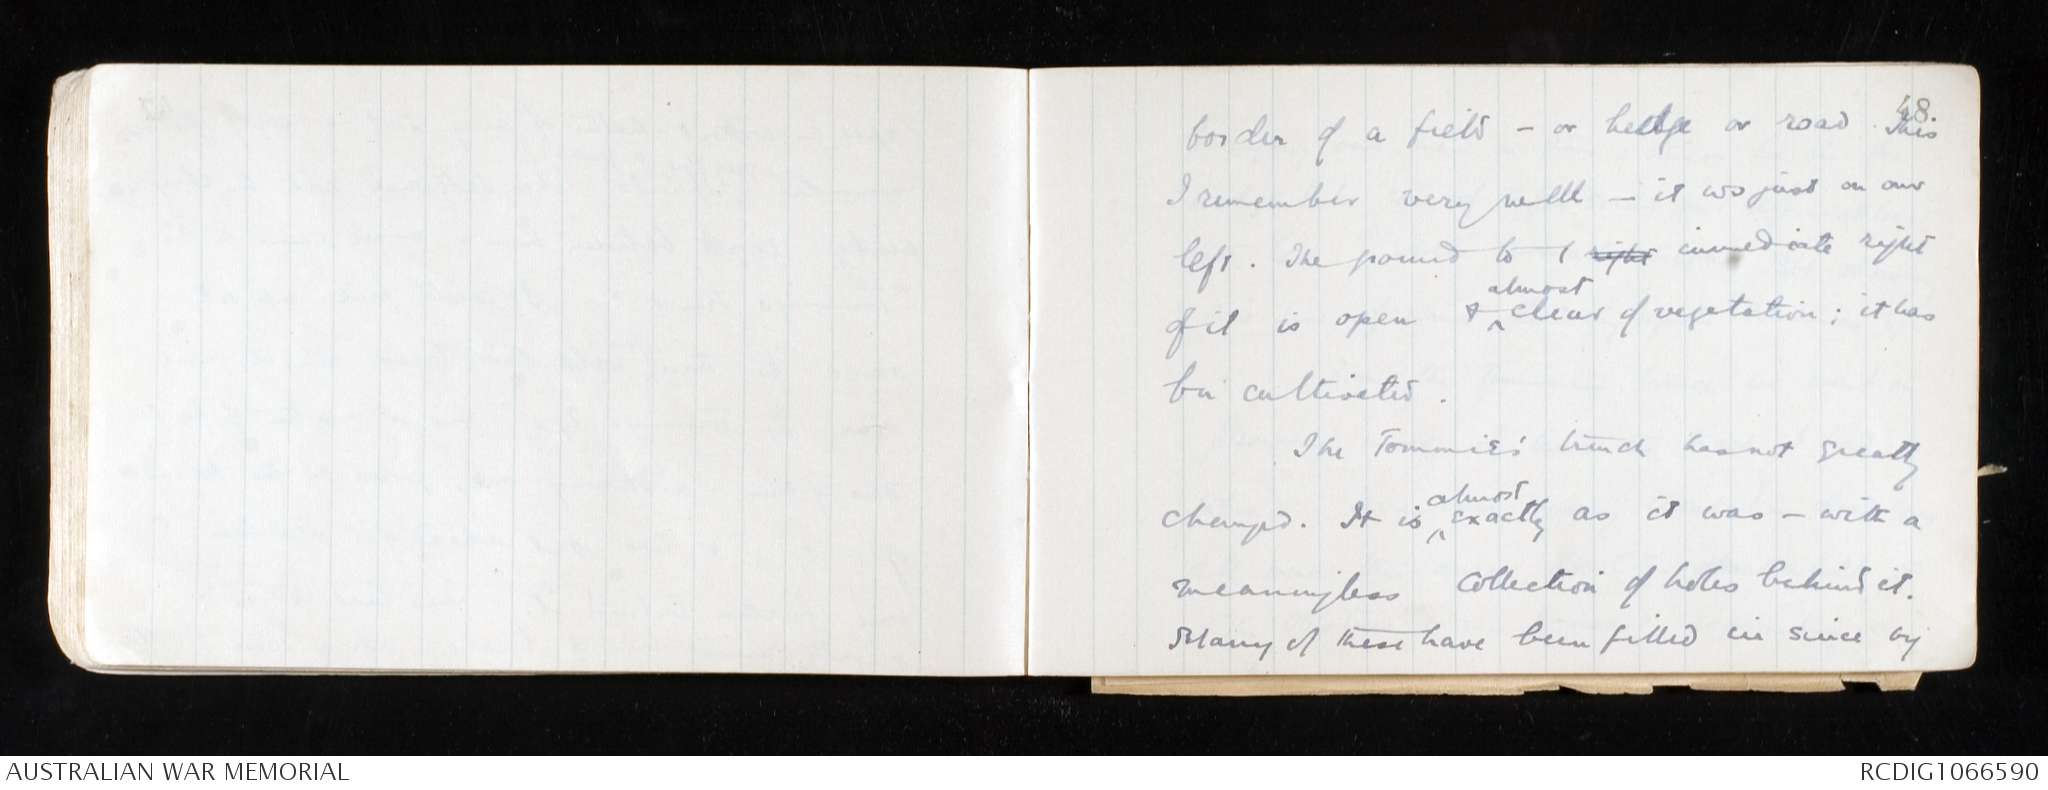 48.
border of a field - or hedge or road. This
I remember very well - it was just on our
left. The ground to / ~~right~~ immediate right
of it is open & ^almost clear of vegetation; it has
bn cultivated.
The Tommies' trench has not greatly
changed. It is ^almost exactly as it was - with a
meaningless collection of holes behind it.
Many of these have been filled in since by
AUSTRALIAN WAR MEMORIAL
RCDIG1066590